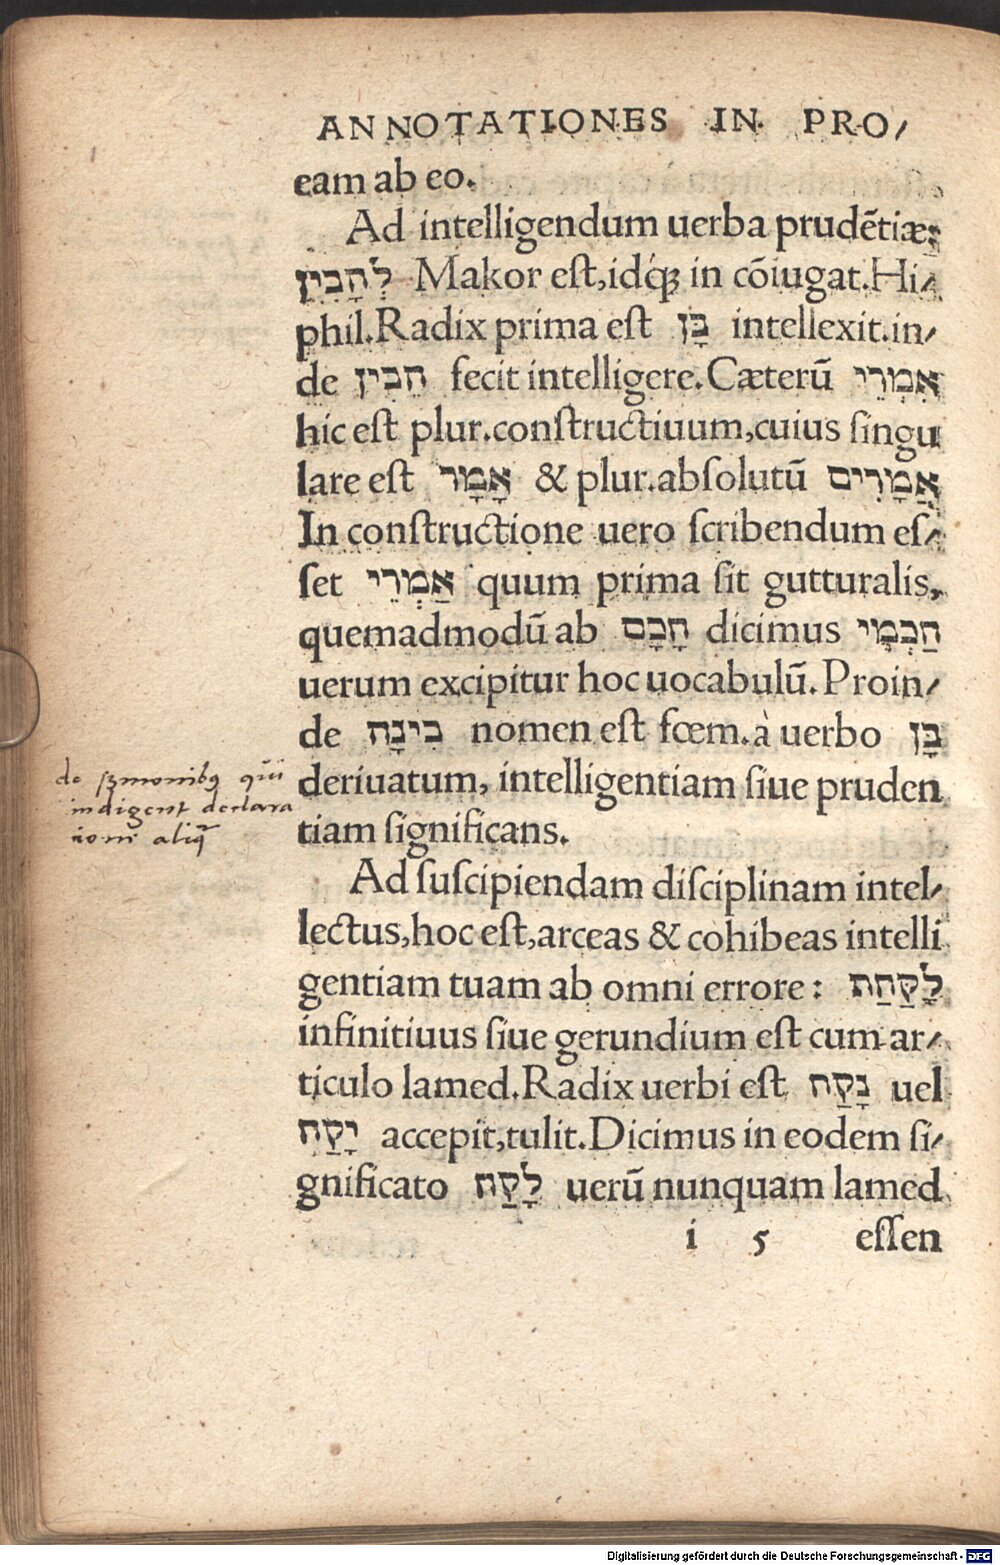 ANNOTATIONES IN PRO/
eam ab eo.
Ad intelligendum uerba prudẽtiæ:
לְהָבִין Makor est, idq́; in cõiugat. Hi/
phil. Radix prima est בָּן intellexit. in/
de הֵבִין fecit intelligere. Cæterũ אִמְרֵי
hic est plur. constructiuum, cuius singu
lare est אָמָר & plur. absolutũ אֲמָרִים
In constructione uero scribendum es/
set אַמְרֵי quum prima sit gutturalis,
quemadmodũ ab חָכָם dicimus חַכְמֵי
uerum excipitur hoc uocabulũ. Proin/
de בִּינָה nomen est fœm. à uerbo בָּן
deriuatum, intelligentiam siue pruden
tiam significans.
de sermonibus qui
indigent declara
ioni
Ad suscipiendam disciplinam intel/
lectus, hoc est, arceas & cohibeas intelli
gentiam tuam ab omni errore: לָקַחַת
infinitiuus siue gerundium est cum ar/
ticulo lamed. Radix uerbi est נָקַח uel
יָקַח accepit, tulit. Dicimus in eodem si/
gnificato לָקַח uerũ nunquam lamed
i 5 essen
Digitalisierung gefördert durch die Deutsche Forschungsgemeinschaft - DFG